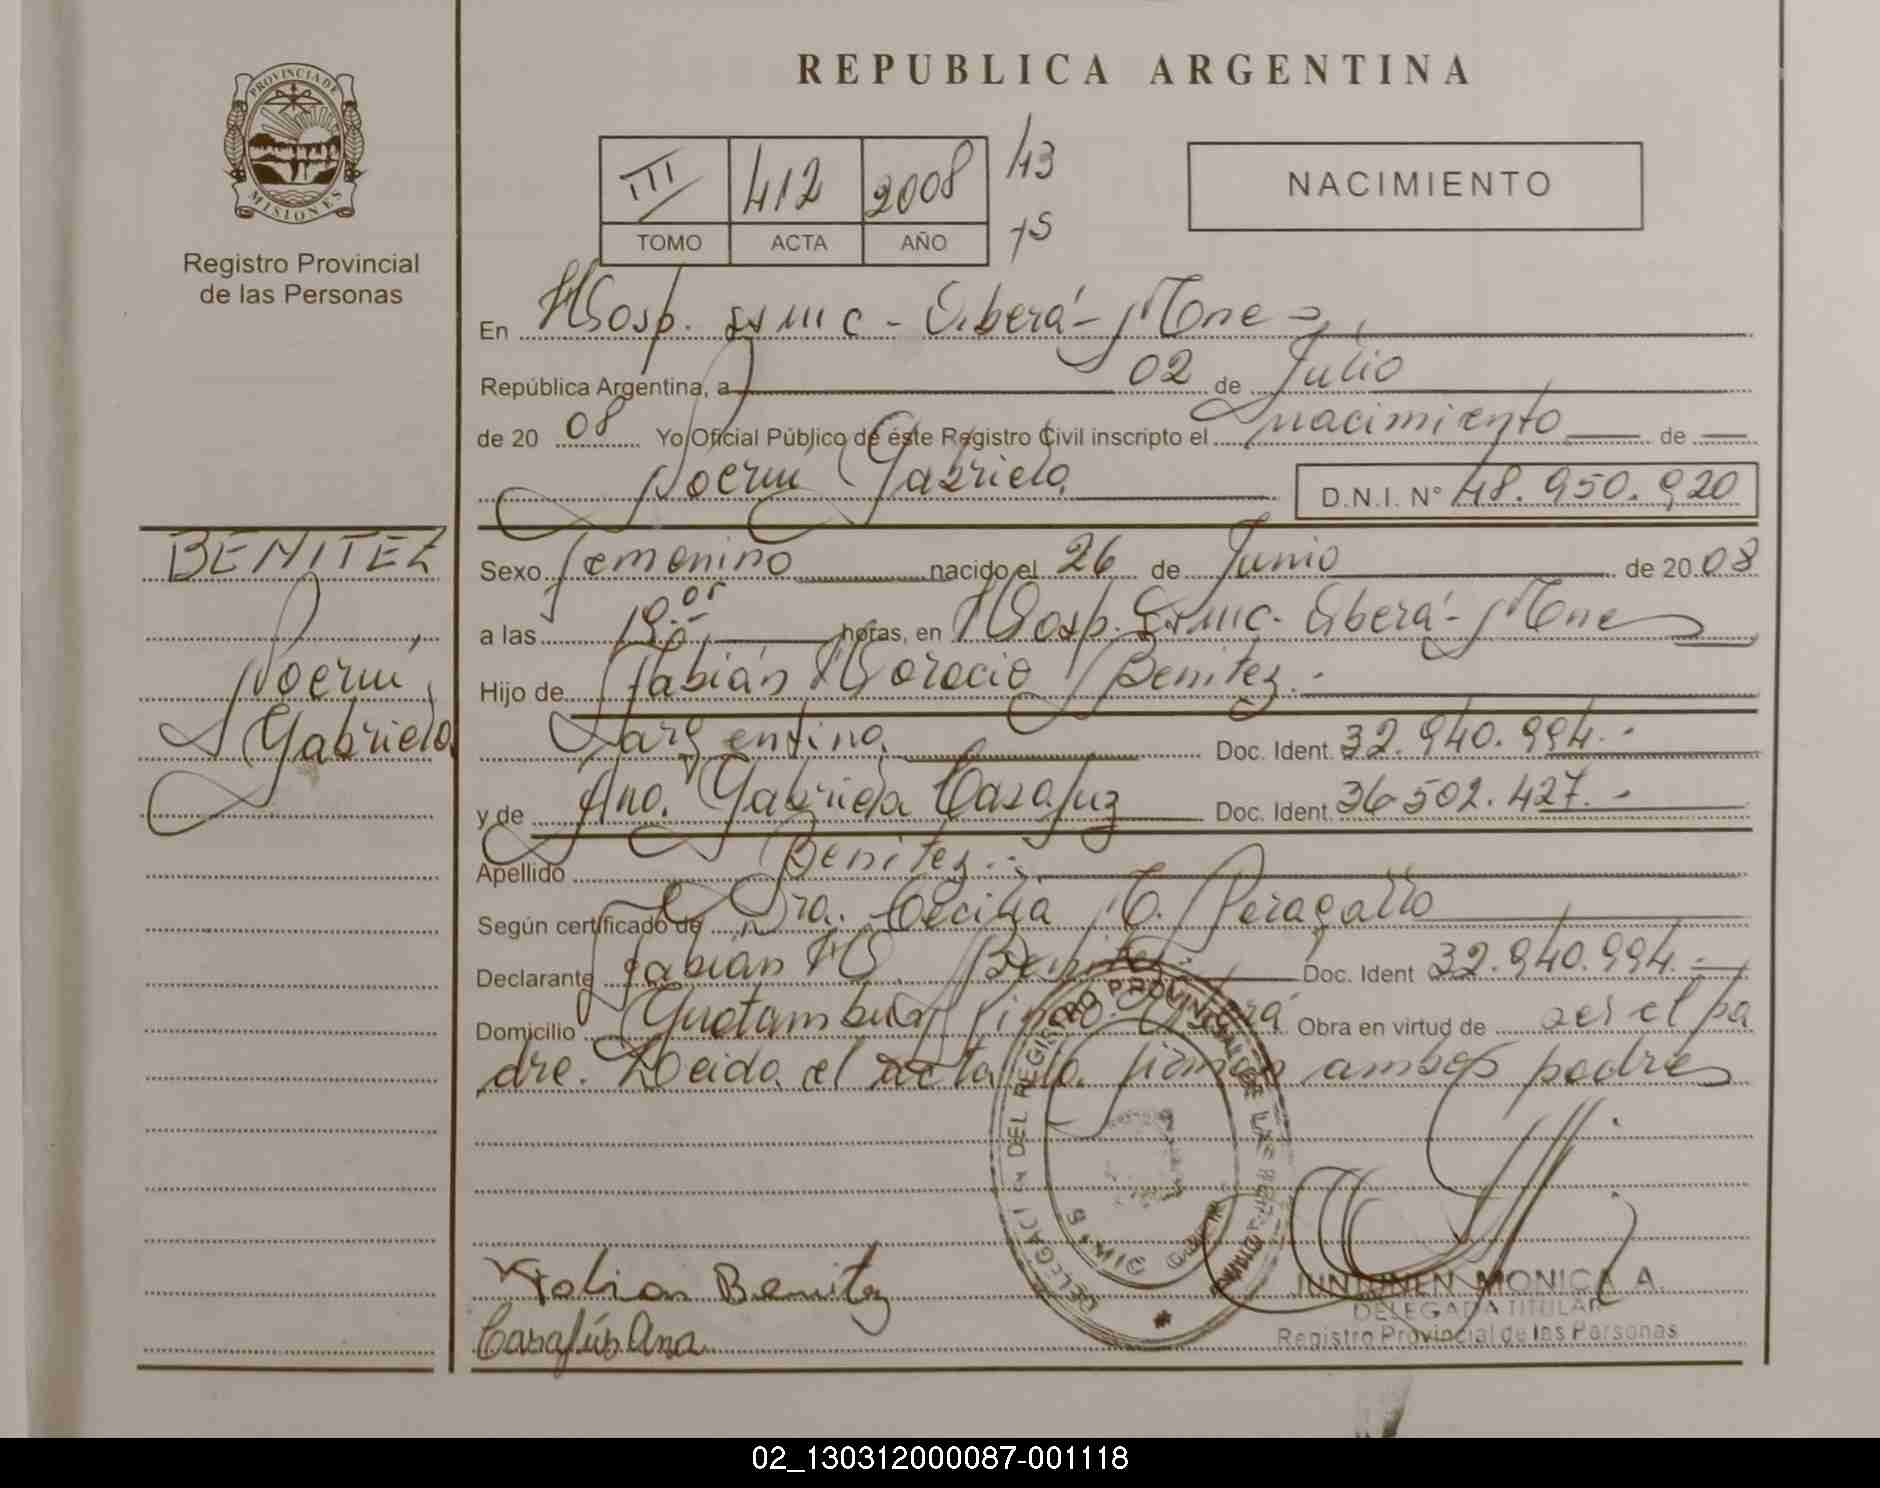 REPUBLICA ARGENTINA
PROVINCIA DE
MISIONES
Registro Provincial
de las Personas
III 412 2008 43
TOMO ACTA AÑO 75
NACIMIENTO
En Hosp. - Oberá - Mnes
República Argentina, a 02 de Julio
de 20 08 Yo Oficial Público de éste Registro Civil inscripto el nacimiento de
Noemí Gabriela D.N.I. N° 48.950.920
BENITEZ
Noemí
Gabriela
Sexo femenino nacido el 26 de Junio de 20 08
a las horas, en Hosp. - Oberá - Mnes
Hijo de Fabián Horacio Benitez.-
Argentina Doc. Ident. 32.940.994.-
y de Ana Gabriela Carafuz Doc. Ident. 36.502.427.-
Apellido Benitez.-
Según certificado de Dra. Cecilia C. Peragallo
Declarante Fabián H. Benitez Doc. Ident 32.940.994.-
Domicilio Guatambú Oberá Obra en virtud de ser el pa
dre. Leida el acta la firman ambos padres
DELEGACI DEL REGISTRO PROVINCIAL DE LAS
Fabian Benitez
Carafús Ana
JUNTUNEN MONICA A.
DELEGADA TITULAR
Registro Provincial de las Personas
02_130312000087-001118